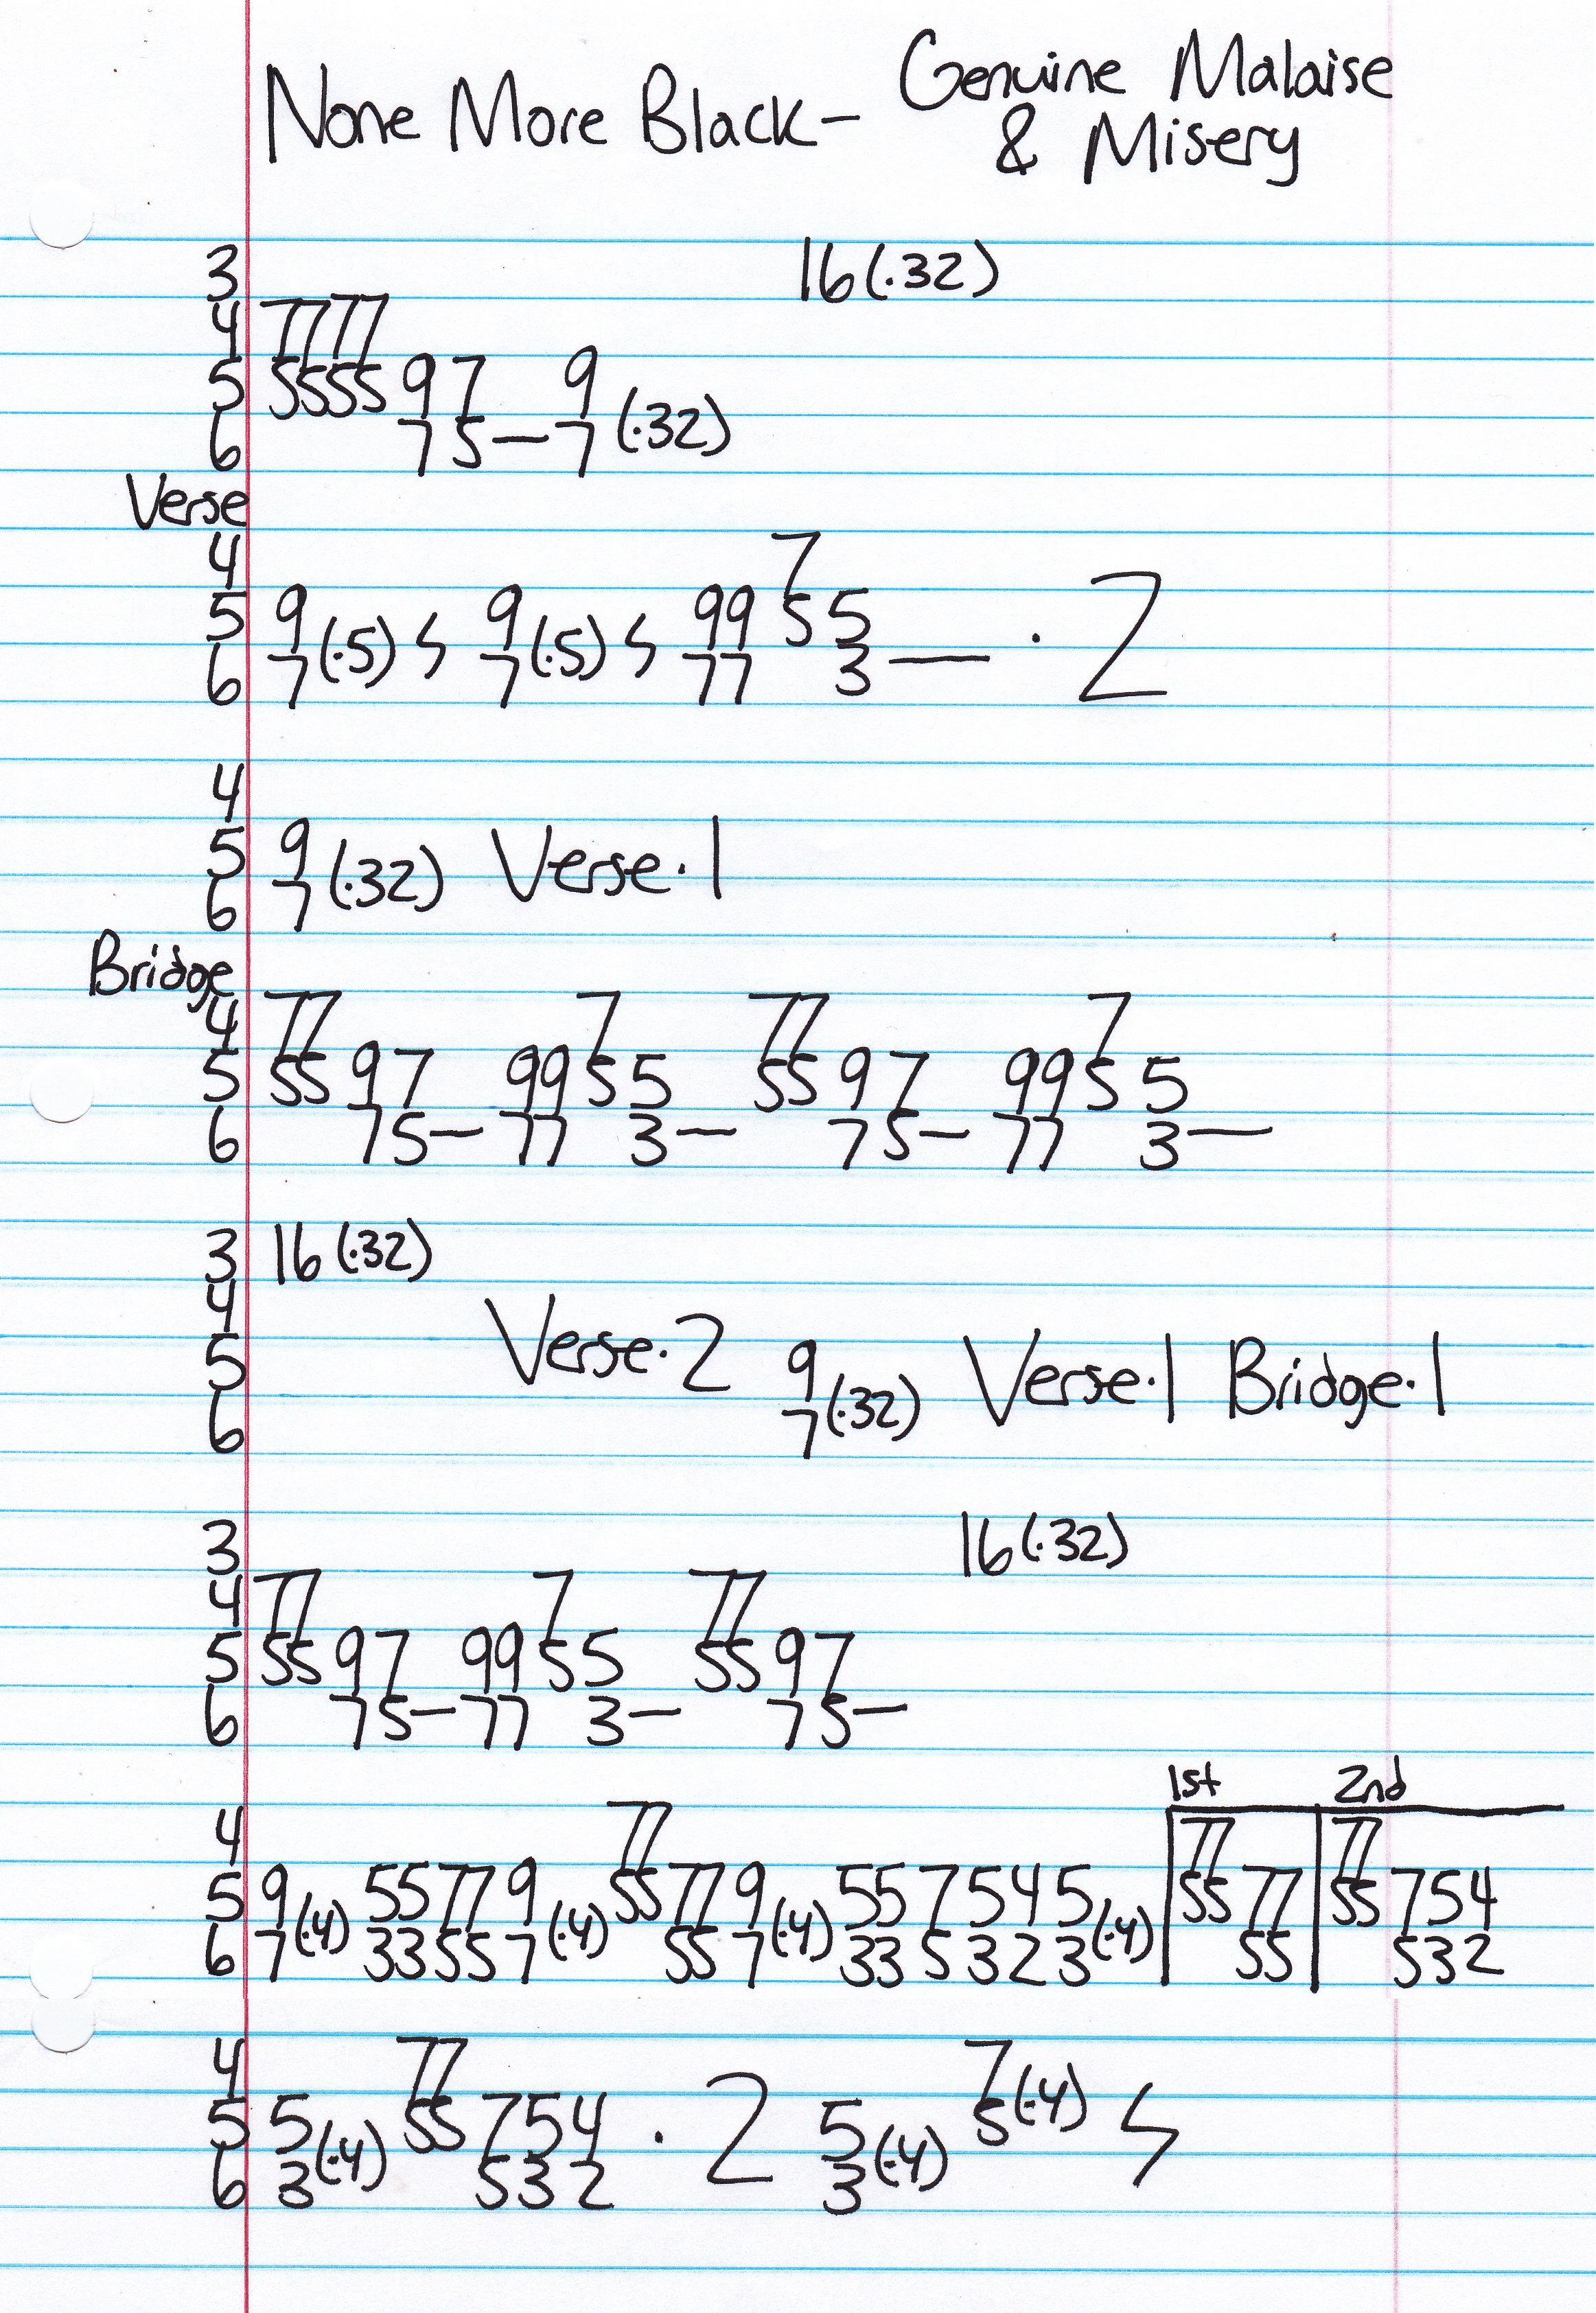 None More Black - Genuine Malaise
& Misery
3 16(·32)
4 7777
5 5555 9 7 9
6 7 5 — 7 (·32)
Verse
4 7
5 9 9 99 5 5
6 7(·5) 𝄽 7(·5) 𝄽 77 3 — · 2
4
5 9
6 7(·32) Verse·1
Bridge
4 77 7 77 7
5 55 9 7 99 5 5 55 9 7 99 5 5
6 7 5 — 77 3 — 7 5 — 77 3 —
3 16(·32)
4
5 Verse·2 9 Verse·1 Bridge·1
6 7(·32)
3 16(·32)
4 77 7 77
5 55 9 7 99 5 5 55 9 7
6 7 5 — 77 3 — 7 5 —
1st 2nd
4 77 77 77
5 9 55 77 9 55 77 9 55 7 5 4 5 55 77 55 7 5 4
6 7(·4) 33 55 7(·4) 55 7(·4) 33 5 3 2 3(·4) 55 5 3 2
4 77 7
5 5 55 7 5 4 · 2 5 5(·4) 𝄽
6 3(·4) 5 3 2 3(·4)